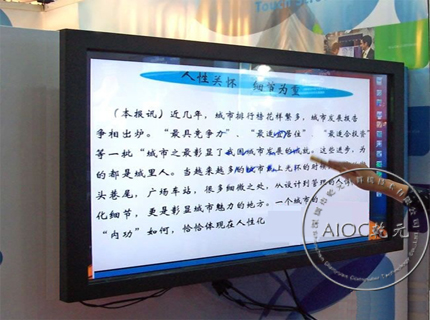 Touch
人性关怀 细节为重
（本报讯）近几年，城市排行榜花样繁多，城市发展报告
争相出炉。“最具竞争力”、“最适宜居住”“最适合投资”
等一批“城市之最彰显了我国城市发展的成就。这些进步，为
的都是城里人。当越来越多的城市
头巷尾，广场车站，很多细微之处，从设计到管理的
化细节，更是彰显城市魅力的地方。一个城市的
“内功”如何，恰恰体现在人性化
AIOC乾元